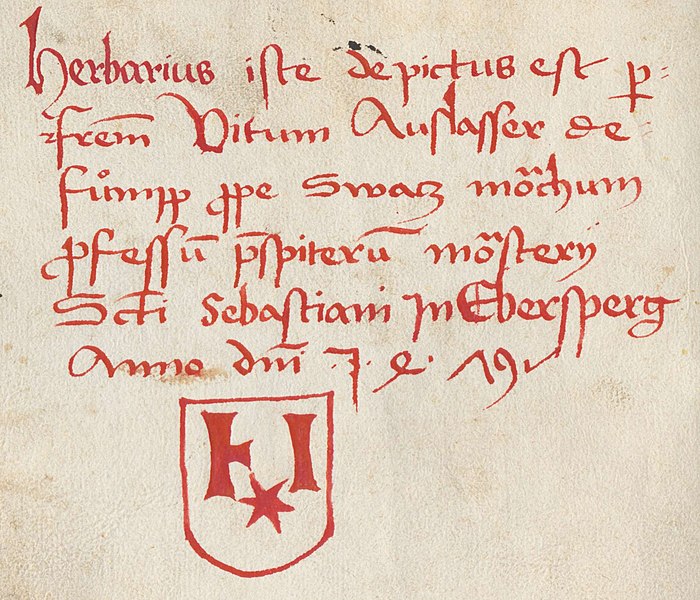 Herbarius iste depictus est p̱=
frem̄ Vitum Auslasser de=
fůmpp ꝓpe Swatz mo̅chum
ꝓfessu̅ p̅sbiteru̅ mo̅sterij
Scti̅ Sebastiani In Ebersperg
Anno dni̅
H I